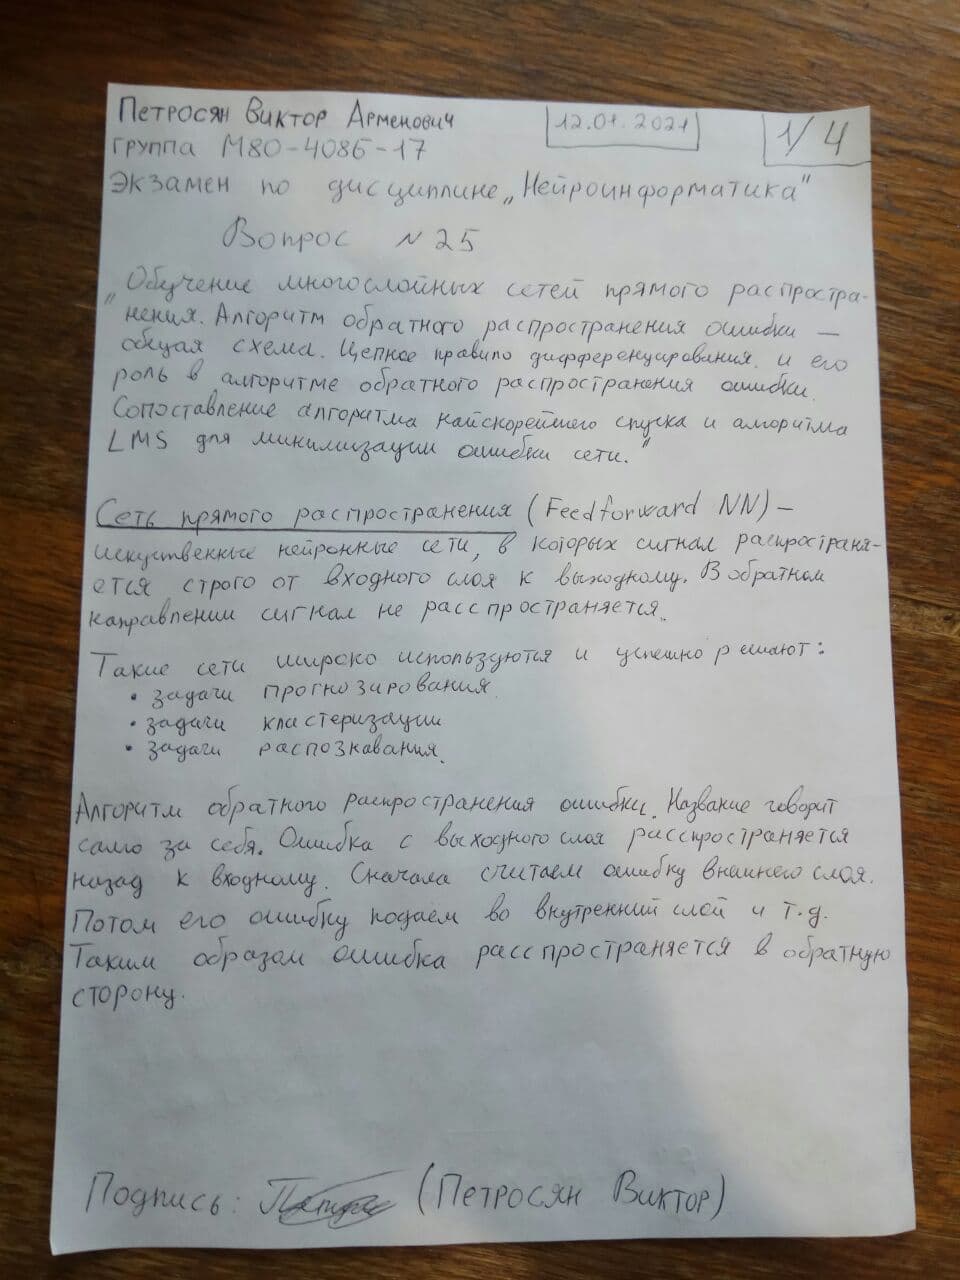 Петросян Виктор Арменович
12.01.2021
1/4
группа М8О-408Б-17
Экзамен по дисциплине „Нейроинформатика"
Вопрос №25
„Обучение многослойных сетей прямого распростра-
нения. Алгоритм обратного распространения ошибки —
общая схема. Цепное правило дифференцирования. и его
роль в алгоритме обратного распространения ошибки.
Сопоставление алгоритма найскорейшего спуска и алгоритма
LMS для минимизации ошибки сети."
Сеть прямого распространения (Feedforward NN) –
искуственные нейронные сети, в которых сигнал распространя-
ется строго от входного слоя к выходному. В обратном
направлении сигнал не расспространяется.
Такие сети широко используются и успешно решают:
• задачи прогнозирования
• задачи кластеризации
• задачи распознавания.
Алгоритм обратного распространения ошибки. Название говорит
само за себя. Ошибка с выходного слоя расспространяется
назад к входному. Сначала считаем ошибку внешнего слоя.
Потом его ошибку подаём во внутренний слой и т.д.
Таким образом ошибка расспространяется в обратную
сторону.
Подпись: (Петросян Виктор)